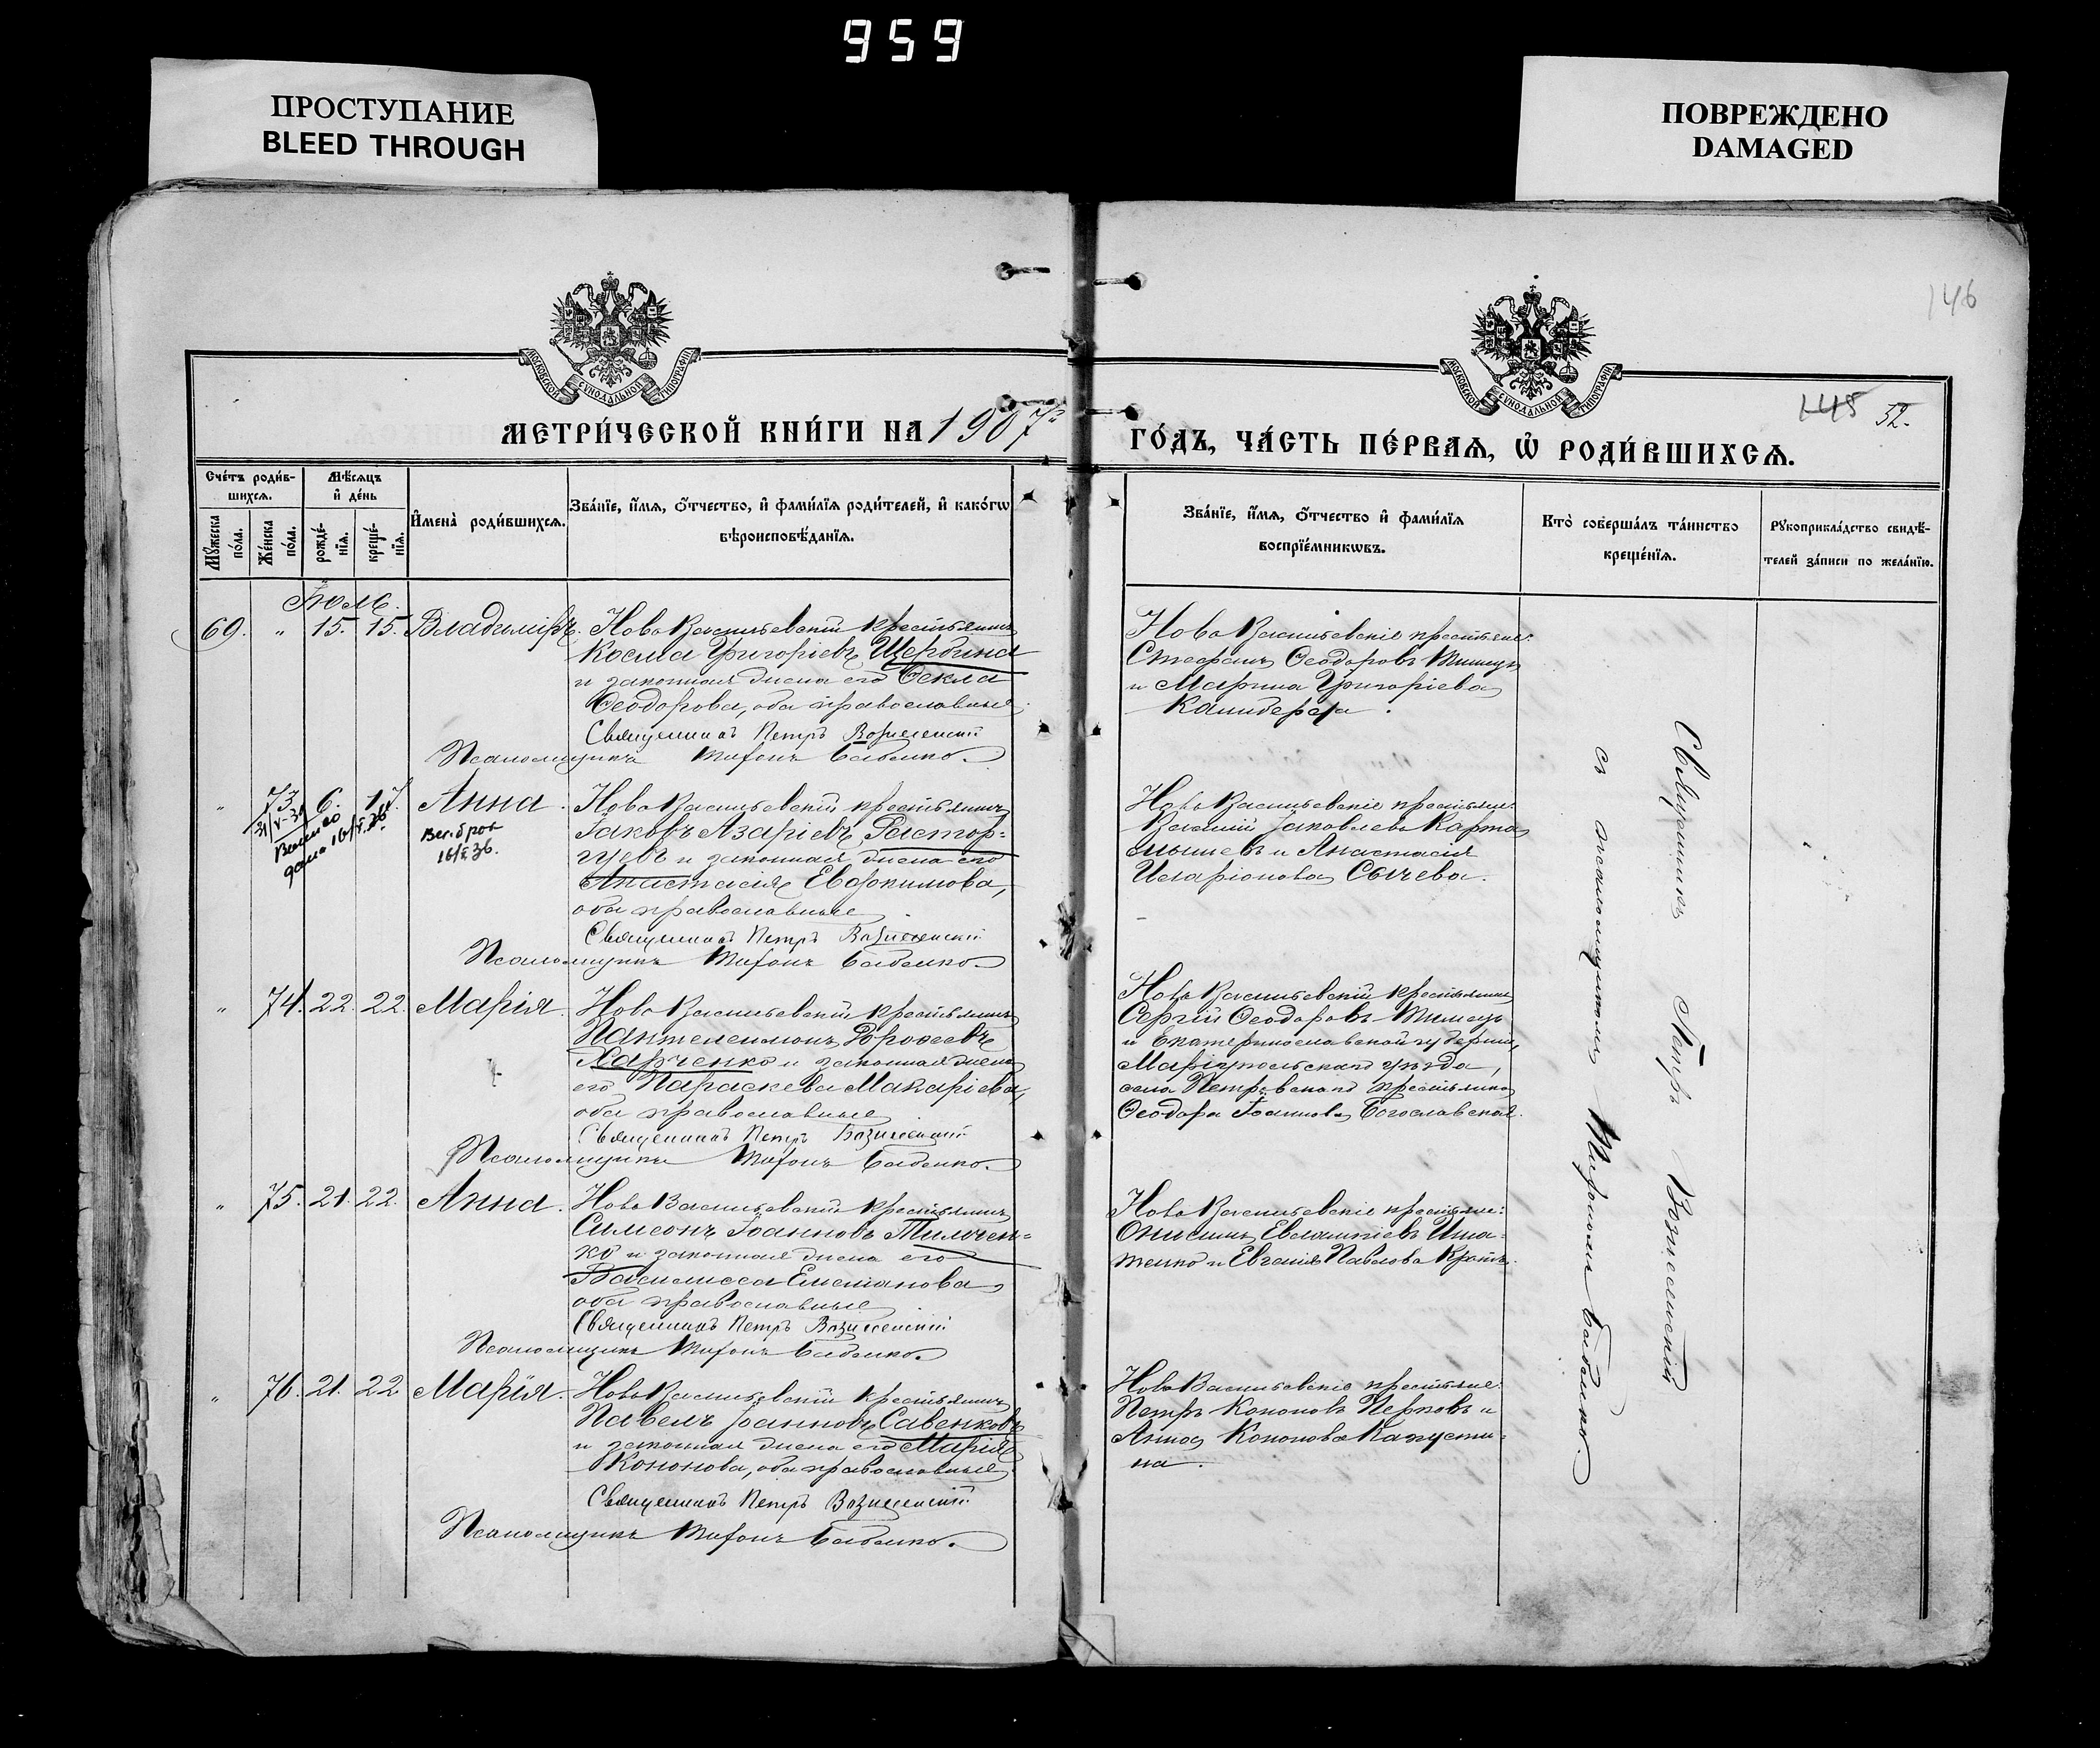 959
ПРОСТУПАНИЕ
BLEED THROUGH
ПОВРЕЖДЕНО
DAMAGED
146
145 52.
МОСКОВСКОЙ СѴНОДАЛЬНОЙ ТИПОГРАФІИ
МОСКОВСКОЙ СѴНОДАЛЬНОЙ ТИПОГРАФІИ
МЕТРИ́ЧЕСКОЙ КНИ́ГИ НА 1907
ГО́ДЪ, ЧА́СТЬ ПЕ́РВАѦ, Ѽ РОДИ́ВШИХСѦ.
Сче́тъ роди́в-
шихсѧ.
Мꙋ́жеска по́ла.
Же́нска по́ла.
Мѣ́сѧцъ
и҆ де́нь
рожде́-
нїѧ.
креще́-
нїѧ.
И҆мена̀ роди́вшихсѧ.
Зва́нїе, и҆́мѧ, ѻ҆́тчество, и҆ фами́лїѧ роди́телей, и҆ како́гѡ
вѣроисповѣ́данїѧ.
Зва́нїе, и҆́мѧ, ѻ҆́тчество и҆ фами́лїѧ
воспрїе́мникѡвъ.
Кто̀ соверша́лъ та́инство
креще́нїѧ.
Рꙋкоприкла́дство свидѣ́-
телей за́писи по жела́нїю.
Іюль.
69. " 15. 15. Владиміръ.
Ново Васильевскій крестьянинъ
Косма Григоріевъ Щербина
и законная жена его Ѳекла
Ѳеодорова, оба православные.
Священникъ Петръ Вознесенскій
Псаломщикъ Тифонъ Бабенко.
Ново Васильевскіе крестьяне:
Стефанъ Ѳеодоровъ
и Марина Григоріева
" 73 6. 17. Анна.
31/V-31
Выпись
дана 16/V.36
16/V.36.
Ново Васильевскій крестьянинъ
Іаковъ Азаріевъ Расторгуевъ
и законная жена его
Анастасія Евфимова,
оба православные.
Священникъ Петръ Вознесенскій
Псаломщикъ Тифонъ Бабенко.
Ново Васильевскіе крестьяне:
Василій Іаковлевъ Карта-
мышевъ и Анастасія
Иларіонова Сычева.
" 74. 22. 22. Марія.
Ново Васильевскій крестьянинъ
Пантелеимонъ
Харченко и законная жена
его Параскева Макаріева,
оба православные.
Священникъ Петръ Вознесенскій
Псаломщикъ Тифонъ Бабенко.
Ново Васильевскій крестьянинъ
Сергій Ѳеодоровъ
и Екатеринославской губерніи,
Маріупольскаго уѣзда,
села Петровскаго крестьянка
Ѳеодора Іоаннова Богославская.
" 75. 21. 22. Анна.
Ново Васильевскій крестьянинъ
Симеонъ Іоанновъ Тимчен-
ко и законная жена его
Василисса Емелианова
оба православные.
Священникъ Петръ Вознесенскій
Псаломщикъ Тифонъ Бабенко.
Ново Васильевскіе крестьяне:
Онисимъ Евлампіевъ Игна-
тенко и Евгенія Павлова
" 76. 21. 22 Марія.
Ново Васильевскій крестьянинъ
Павелъ Іоанновъ Савенковъ
и законная жена его Марія
Кононова, оба православные.
Священникъ Петръ Вознесенскій
Псаломщикъ Тифонъ Бабенко.
Ново Васильевскіе крестьяне:
Петръ Кононовъ Перковъ и
Анна Кононова Капусти-
на.
Священникъ Петръ Вознесенскій
съ псаломщикомъ Тифономъ Бабенко.